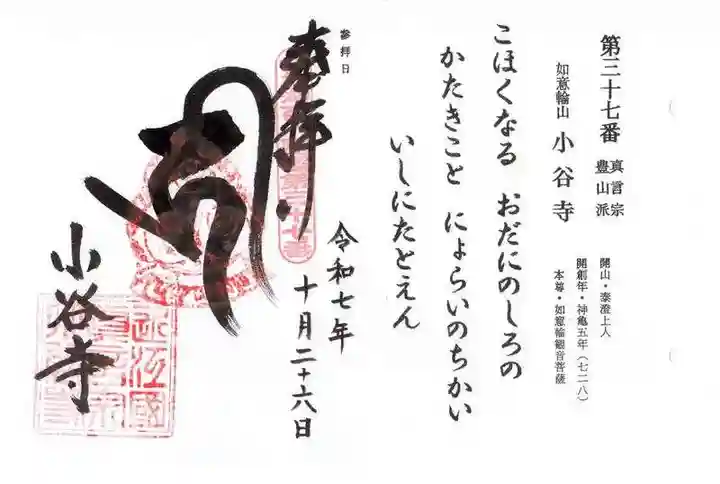 第三十七番 真言宗
豊山派
如意輪山 小谷寺
開山・泰澄上人
開創年・神亀五年(七二八)
本尊・如意輪観音菩薩
こほくなる おだにのしろの
かたきこと にょらいのちかい
いしにたとえん
参拝日
奉拝
令和七年
十月二十六日
小谷寺